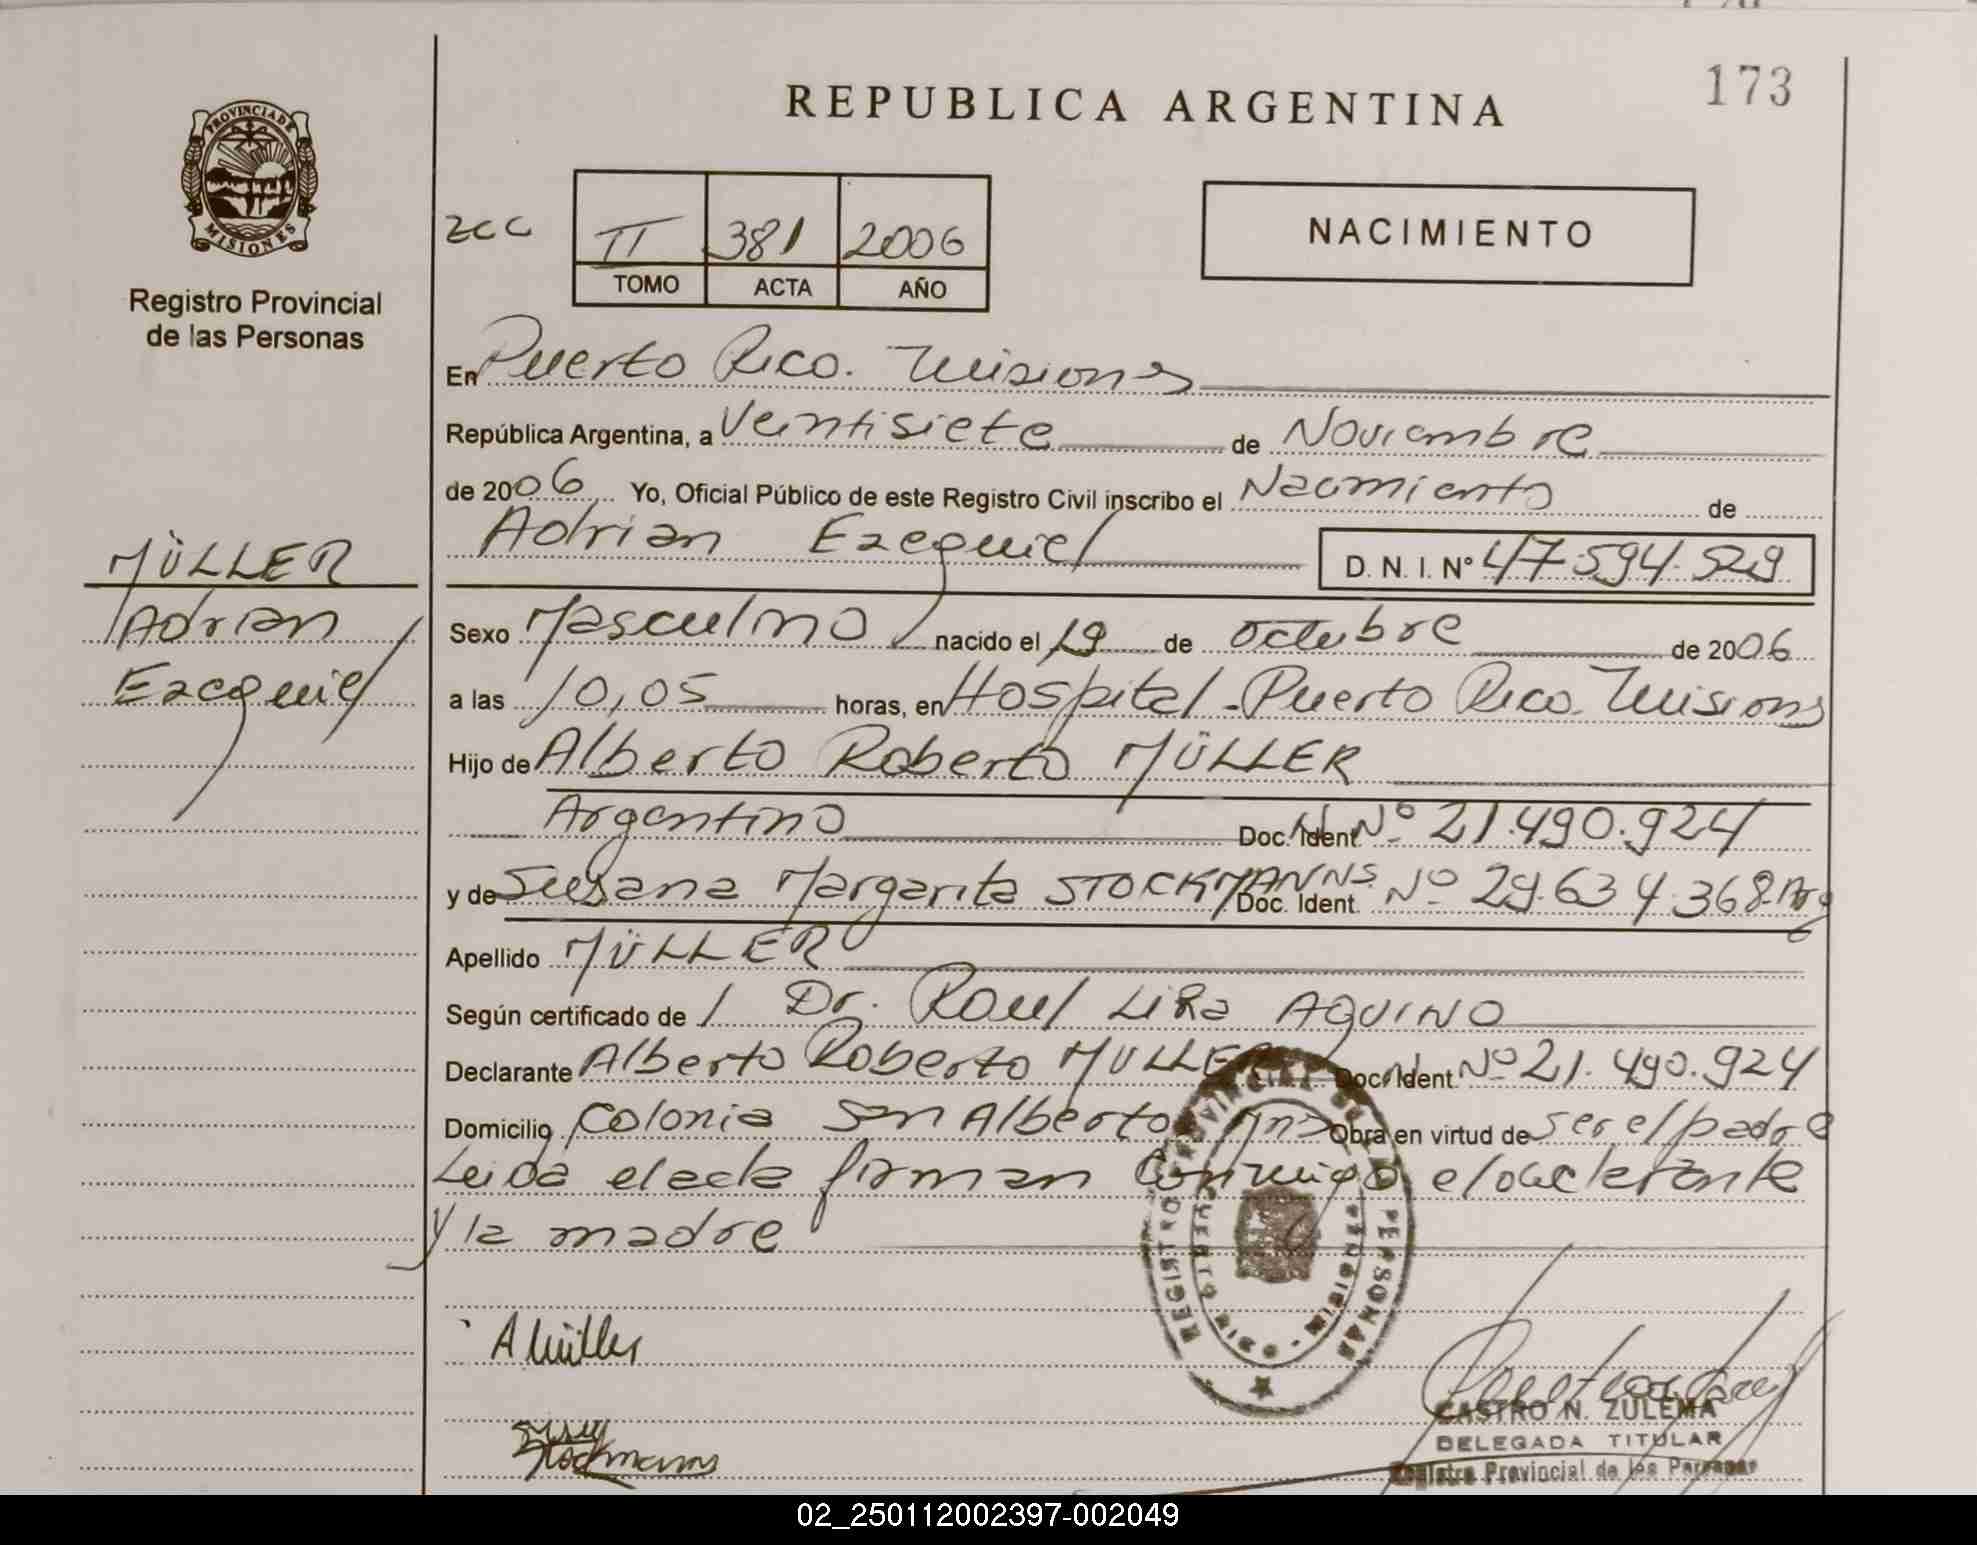 173
REPUBLICA ARGENTINA
PROVINCIA DE
MISIONES
Registro Provincial
de las Personas
zcc
II 381 2006
TOMO ACTA AÑO
NACIMIENTO
En Puerto Rico. Misiones
República Argentina, a Veintisiete de Noviembre
de 2006 Yo, Oficial Público de este Registro Civil inscribo el Nacimiento de
Adrian Ezequiel D. N. I. Nº 47.594.529
MÜLLER
Adrian
Ezequiel
Sexo Masculino nacido el 19 de octubre de 2006
a las 10,05 horas, en Hospital - Puerto Rico. Misiones
Hijo de Alberto Roberto MÜLLER
Argentino Doc. Ident. Nº 21.490.924
y de Susana Margarita STOCKMANNS Doc. Ident. Nº 29.634.368-Arg
Apellido MÜLLER
Según certificado de Dr. Raul LiRa AQUINO
Declarante Alberto Roberto MULLER Doc. Ident. Nº 21.490.924
Domicilio Colonia San Alberto Mns Obra en virtud de ser el padre
Leida el acta firman Conmigo el declarante
y la madre
A Müller
Susy
Stockmanns
REGISTRO PROVINCIAL DE LAS PERSONAS
PUERTO RICO - MISIONES
CASTRO N. ZULEMA
DELEGADA TITULAR
Registro Provincial de las Personas
02_250112002397-002049